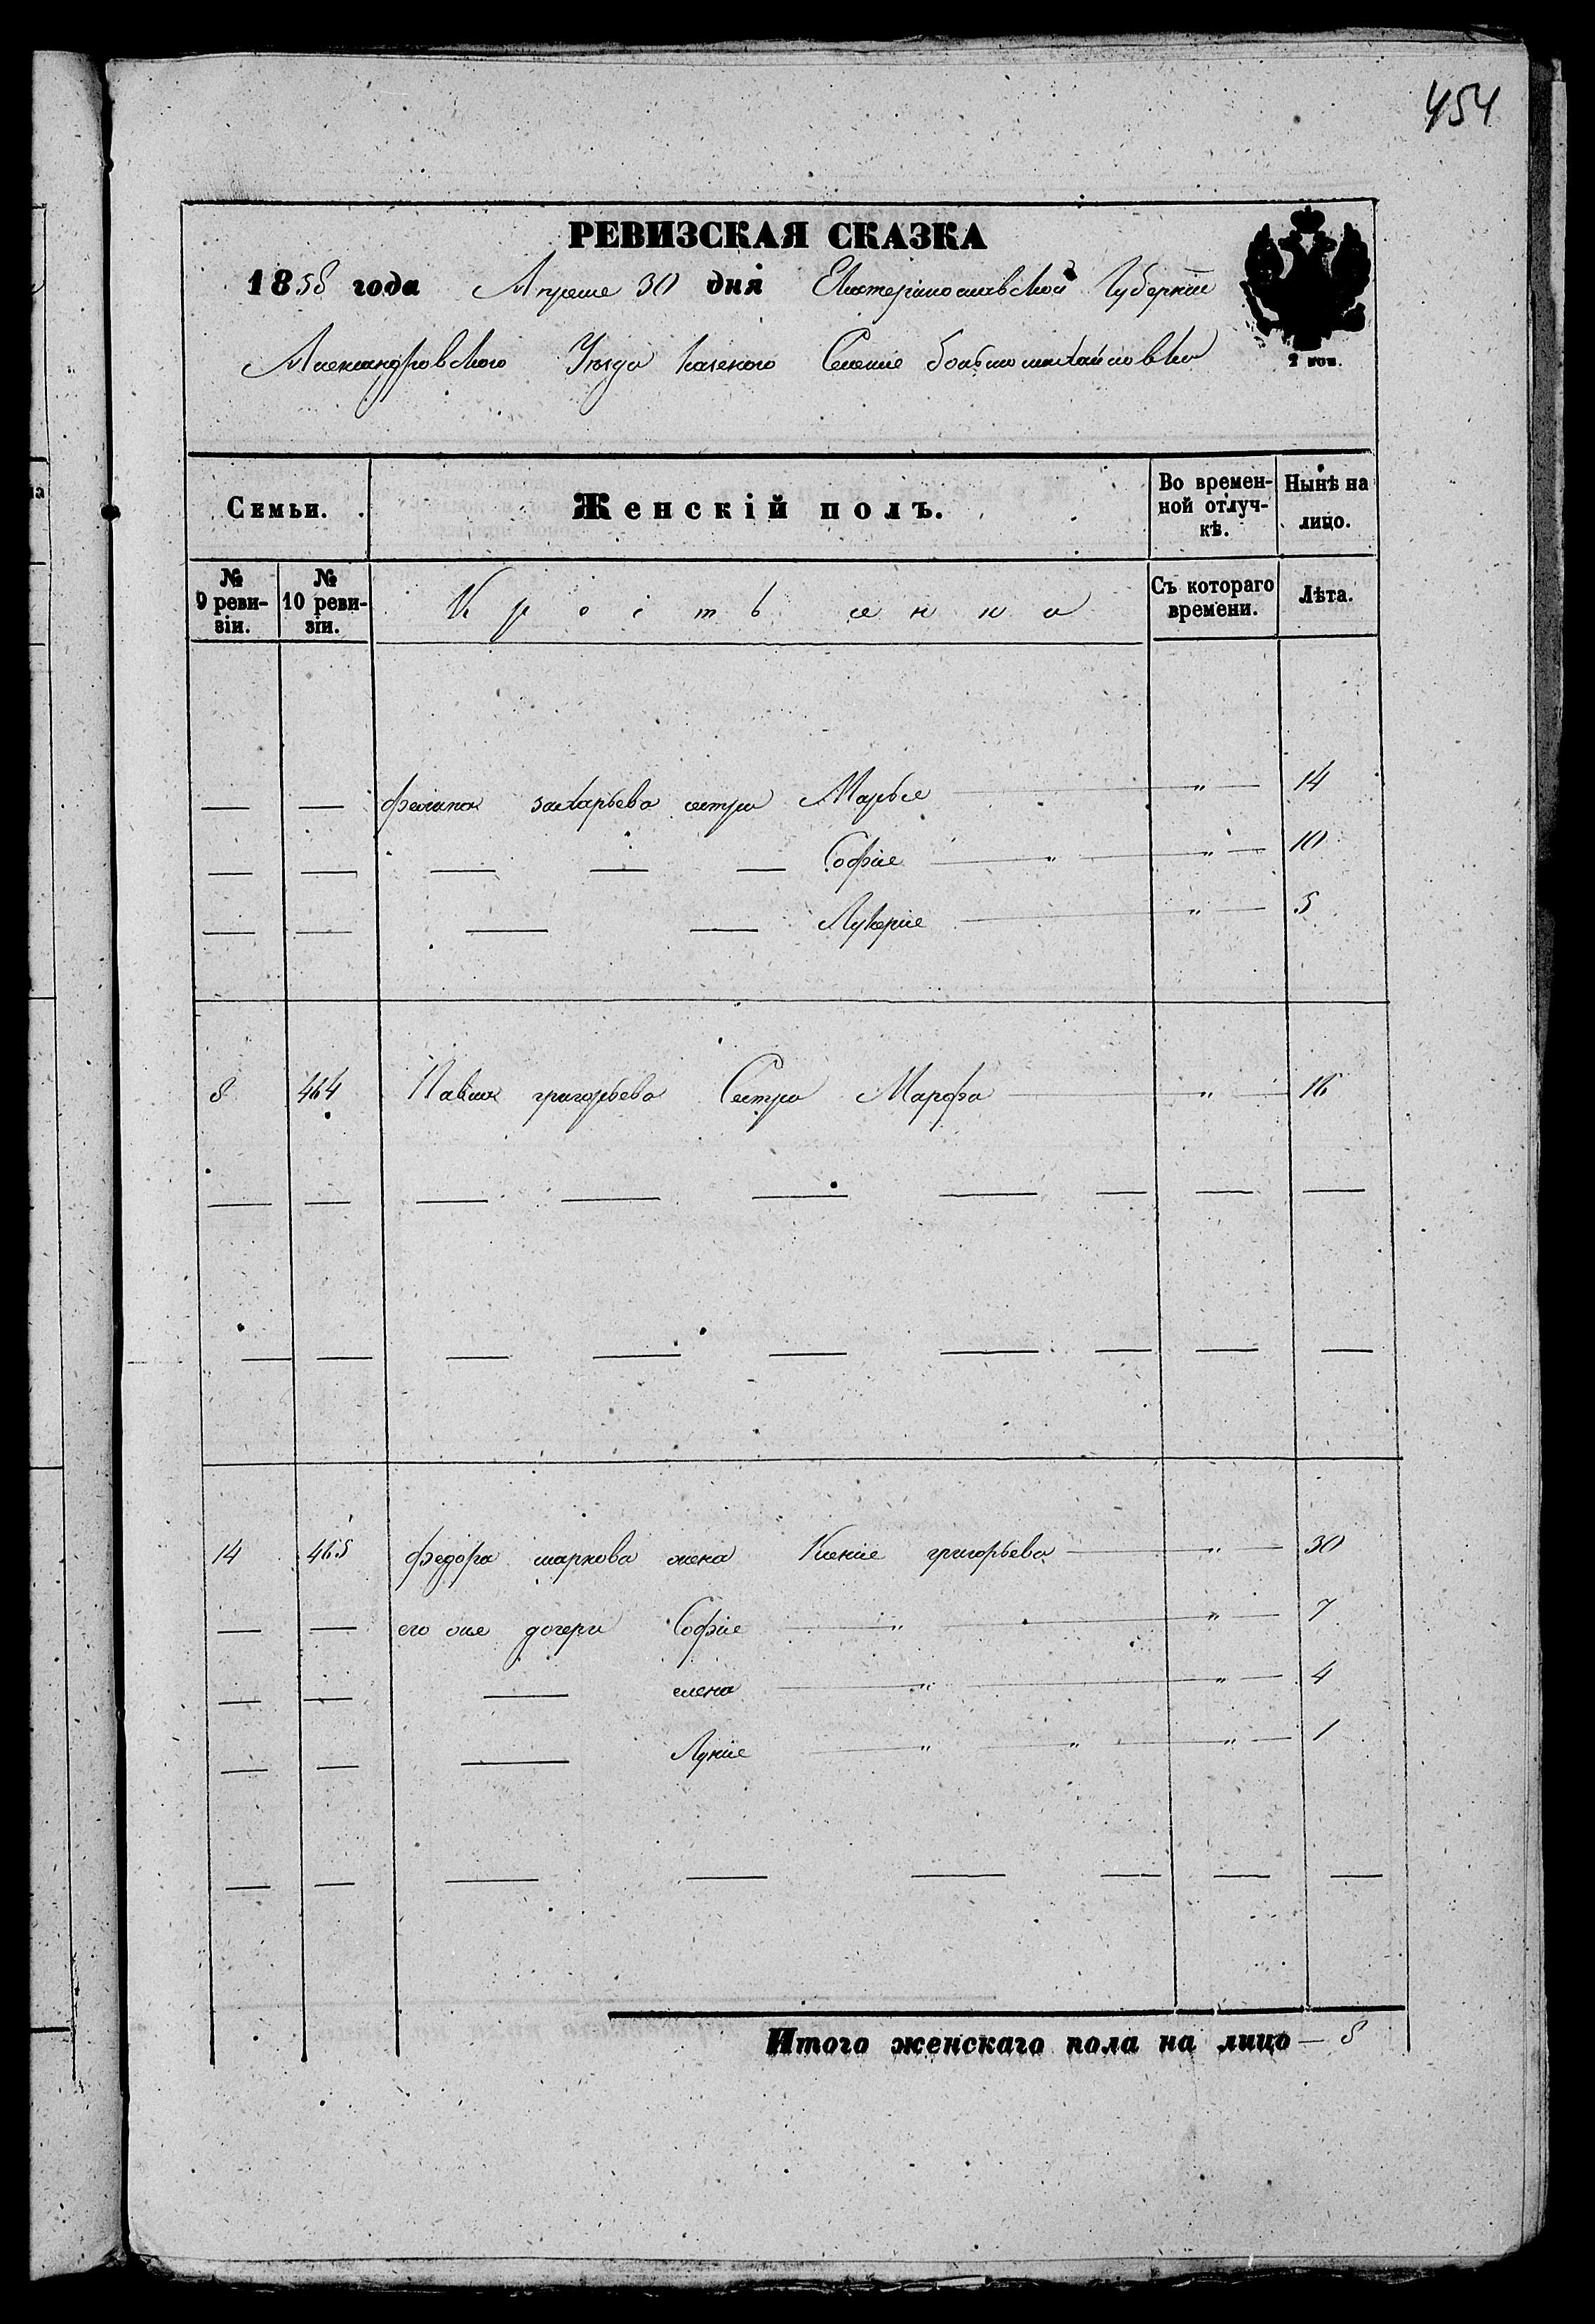 454
РЕВИЗСКАЯ СКАЗКА
1858 года Апреля 30 дня Екатеринославской Губернии
Александровского Уезда казеного Селения большомихайловки
2 коп.
Семьи. Женскій полъ. Во времен-ной отлуч-кѣ. Нынѣ на лицо.
№ 9 реви-зіи. № 10 реви-зіи. Съ котораго времени. Лѣта.
захарьева сестра Марья — " — 14
— — — — — Софія — " — " — 10
— — — — Лукерія — " — 5
8 464 Павла григорьева Сестра Марфа — " — 16
— — — — — — — — —
— — — — — — — — —
14 465 федора маркова жена Ксенія григорьева — " — 30
— — его же дочери Софія — " — " — 7
— — — елена — " — " — 4
— — — Лукія — " — " — " — 1
— — — — — — — —
Итого женскаго пола на лицо — 8